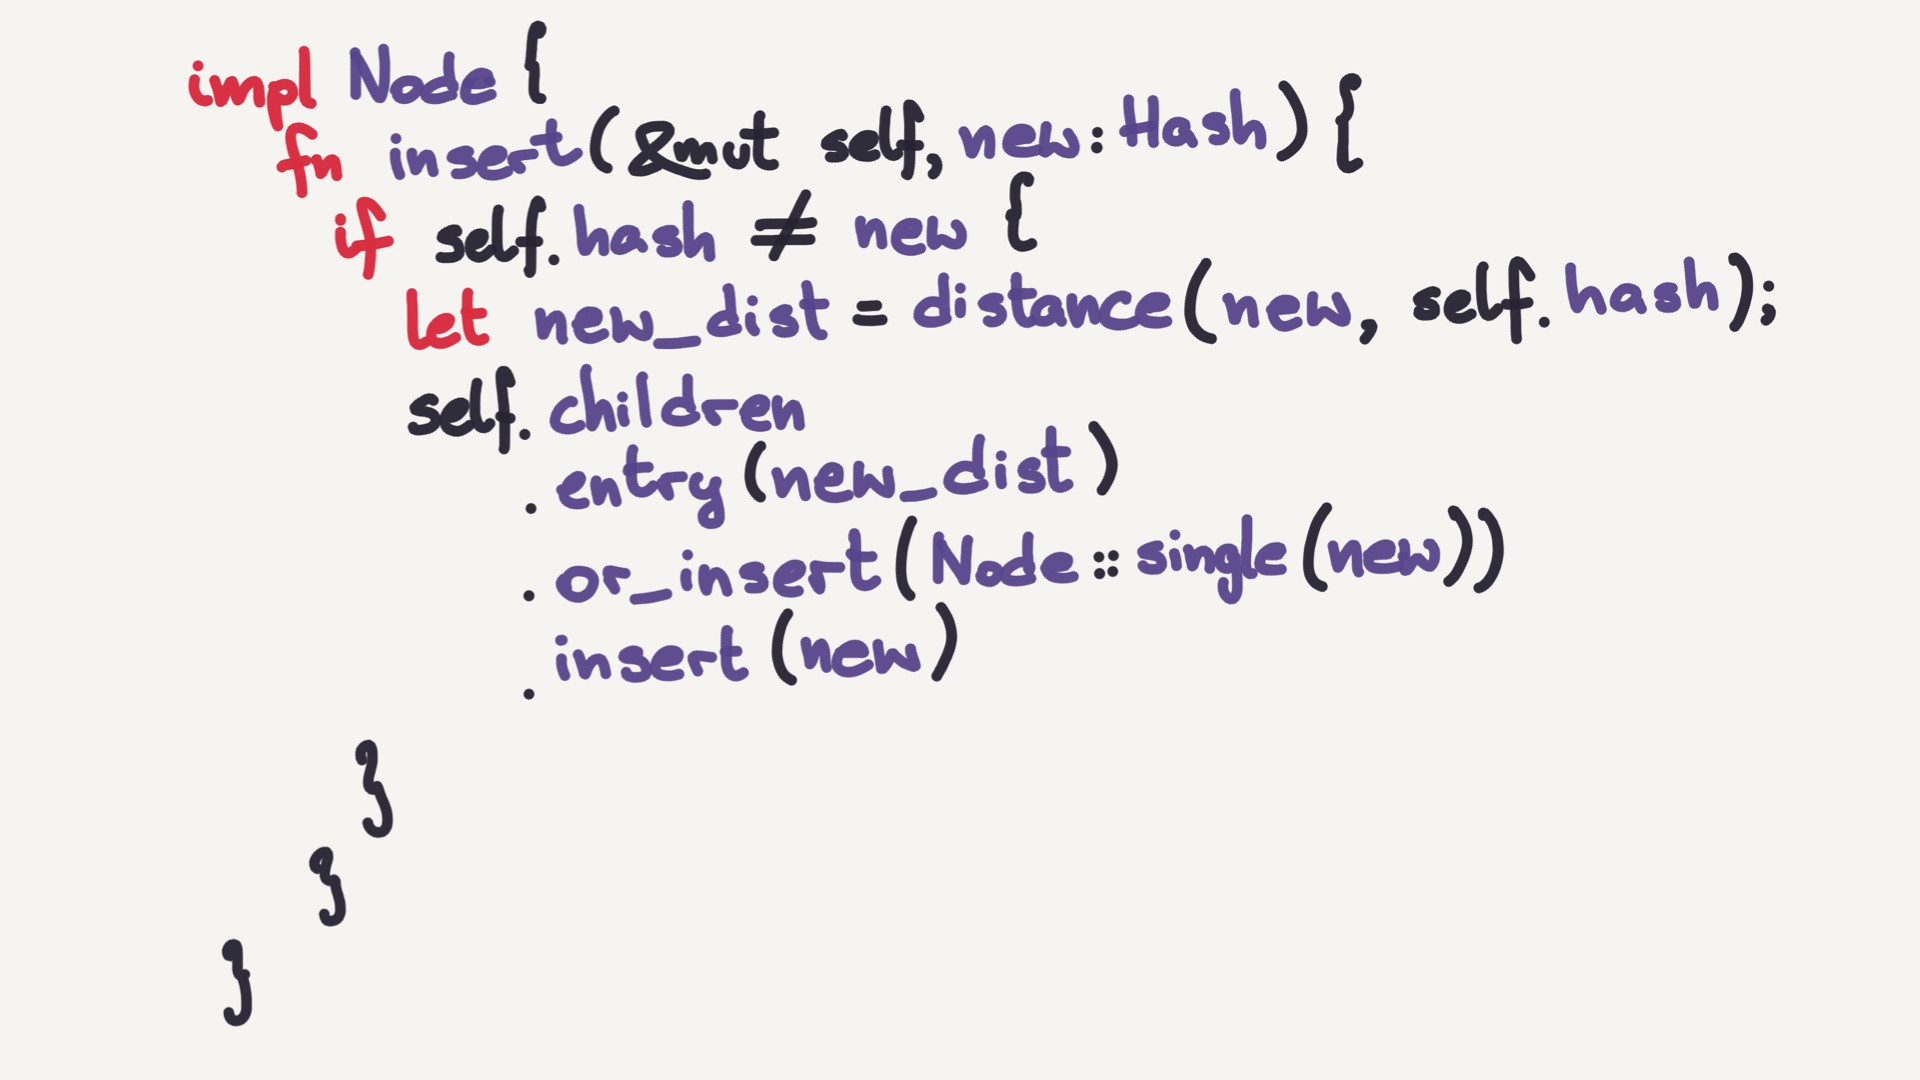 impl Node {
fn insert(&mut self, new: Hash) {
if self.hash ≠ new {
let new_dist = distance(new, self.hash);
self.children
.entry(new_dist)
.or_insert(Node::single(new))
.insert(new)
}
}
}